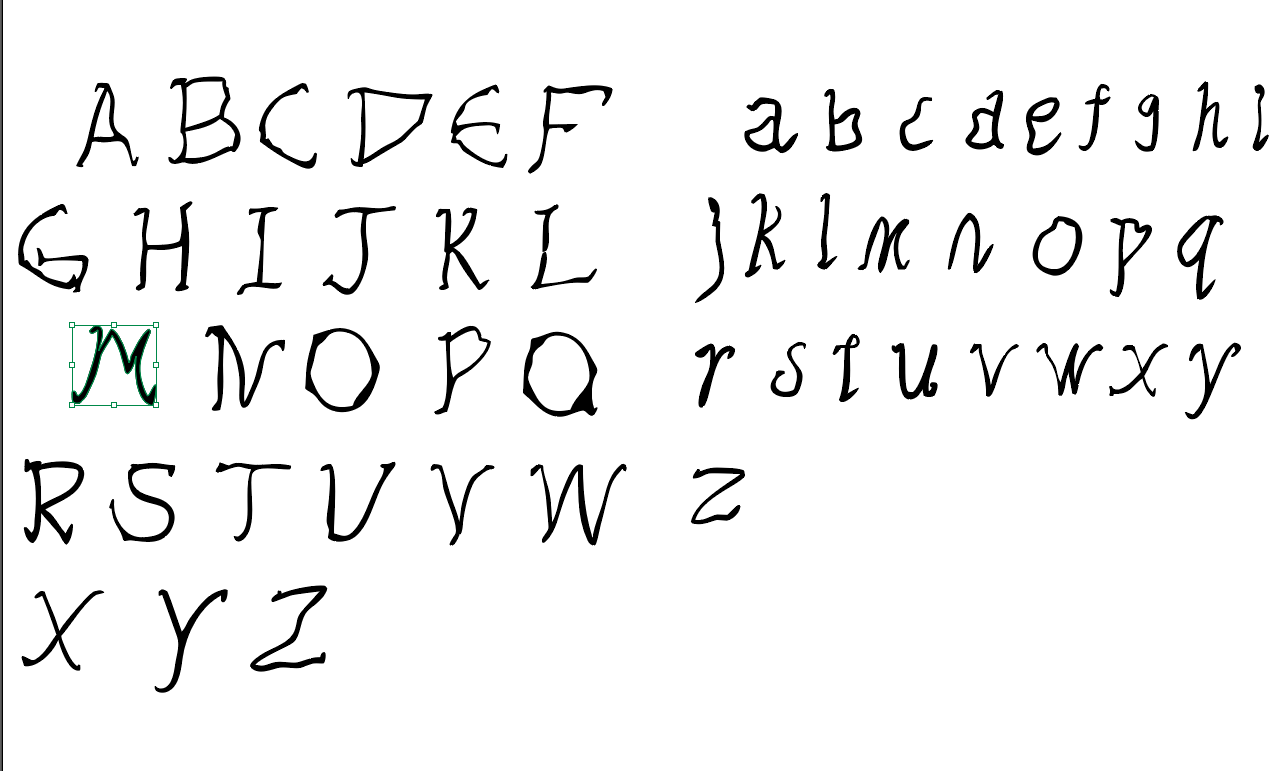 A B C D E F
G H I J K L
M N O P Q
R S T U V W
X Y Z
a b c d e f g h i
j k l m n o p q
r s t u v w x y
z